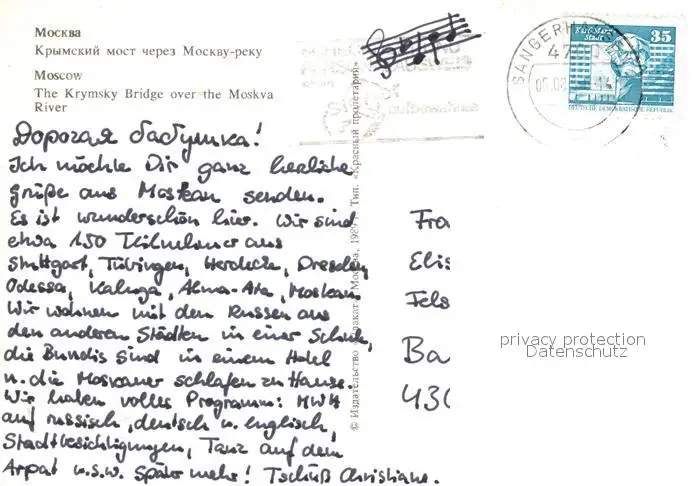 Москва
Крымский мост через Москву-реку
Moscow
The Krymsky Bridge over the Moskva
River
Дорогая бабушка!
Ich möchte Dir ganz herzliche
Grüße aus Moskau senden.
Es ist wunderschön hier. Wir sind
etwa 150 Teilnehmer aus
Stuttgart, Tübingen, Herdecke, Dresden,
Odessa, Kaluga, Alma-Ata, Moskau.
Wir wohnen mit den Russen aus
den anderen Städten in einer Schule,
die Bundis sind in einem Hotel
u. die Moskauer schlafen zu Hause.
Wir haben volles Programm: MWH
auf russisch, deutsch u. englisch,
Stadtbesichtigungen, Tanz auf dem
Arpat u.s.w. Später mehr! Tschüß Christiane.
© Издательство «Плакат». Москва, 1989 г. Тип. «Красный пролетарий»
SANGERHAUSEN
4700
Karl-Marx-
Stadt
35
DEUTSCHE DEMOKRATISCHE REPUBLIK
Fra
Elis
Fels
Ba
430
privacy protection
Datenschutz